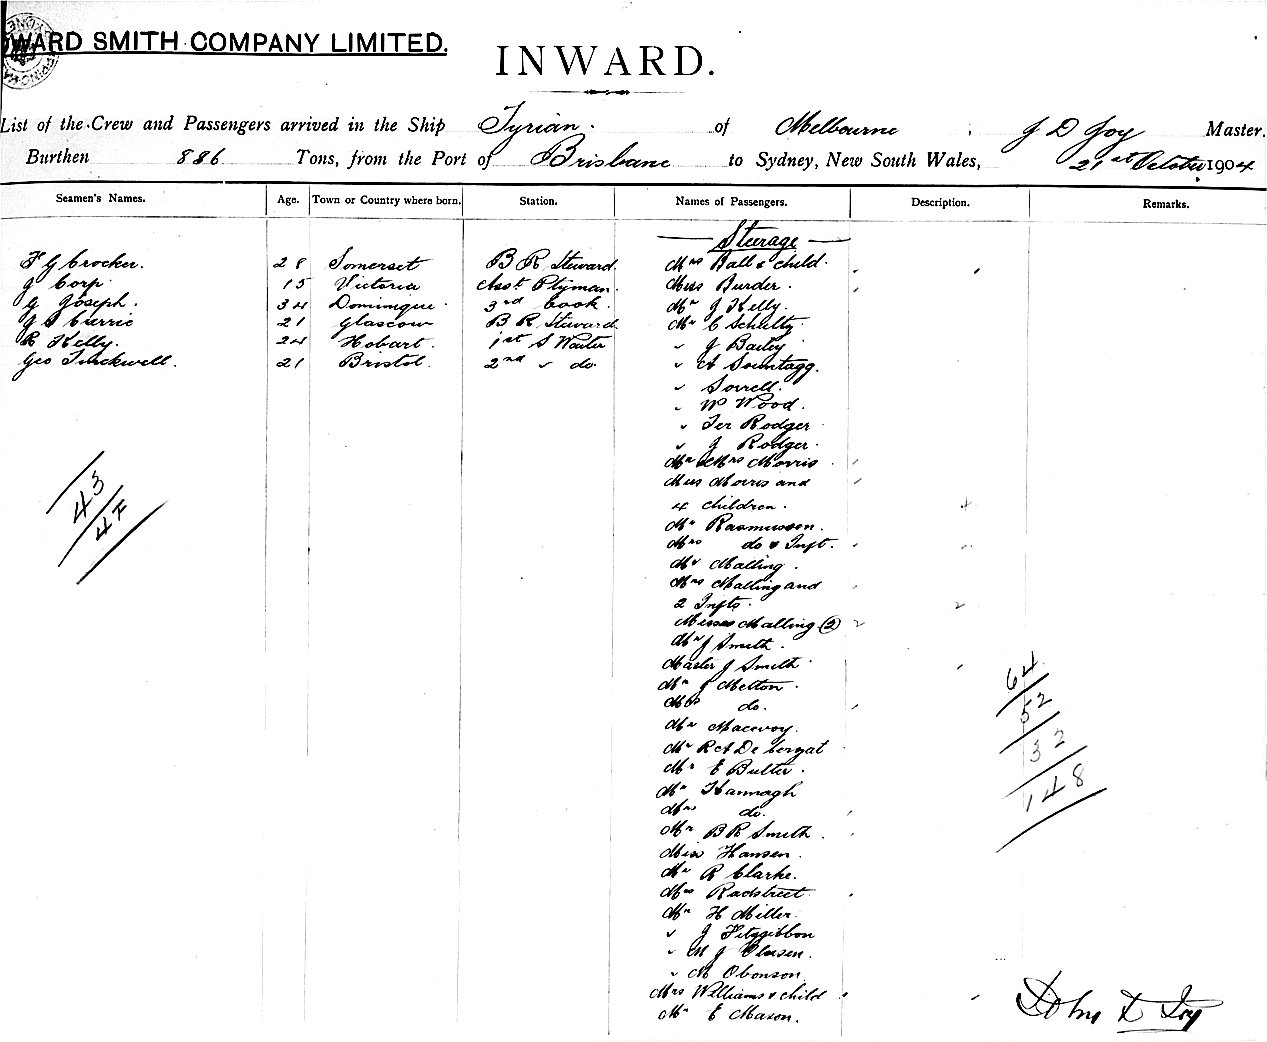 WARD SMITH COMPANY LIMITED.
INWARD.
List of the Crew and Passengers arrived in the Ship Tyrian. of Melbourne, J D Joy Master.
Burthen 886 Tons, from the Port of Brisbane to Sydney, New South Wales, 21st October 1904
Seamen's Names. Age. Town or Country where born. Station. Names of Passengers. Description. Remarks.
Steerage
F G Crocker. 28 Somerset B R Steward. Mrs Ball & child.
J Corp. 15 Victoria Asst Ptyman. Miss Burder.
G Joseph. 34 Dominique 3rd Cook. Mr J Kelly.
J S Currie 21 Glascow B R Steward. Mr C Schultz
R Kelly. 24 Hobart. 1st S Waiter " J Bailey
Geo Tuckwell. 21 Bristol. 2nd " do. " A Sonntagg.
" Sorrell.
" W Wood.
" Ter Rodger
" J Rodger.
Mr & Mrs Morris
Miss Morris and
4 children.
Mr Rasmussen.
Mrs do & Inft.
Mr Malling.
Mrs Malling and
2 Infts.
Misses Malling (2)
Mr J Smith.
Master J Smith
Mr J Melton.
Mrs do.
Mr Macevoy.
Mr R A De
Mr E Butler.
Mr Hannagh
Mrs do.
Mr B R Smith.
Miss Hansen.
Mr R Clarke.
Mrs Radstreet
Mr H Miller.
" J Fitzgibbon
" M J Olsen.
" M Obonson
Mrs Williams & child
Mr E Mason.
43
47
64
52
32
148
John D Joy